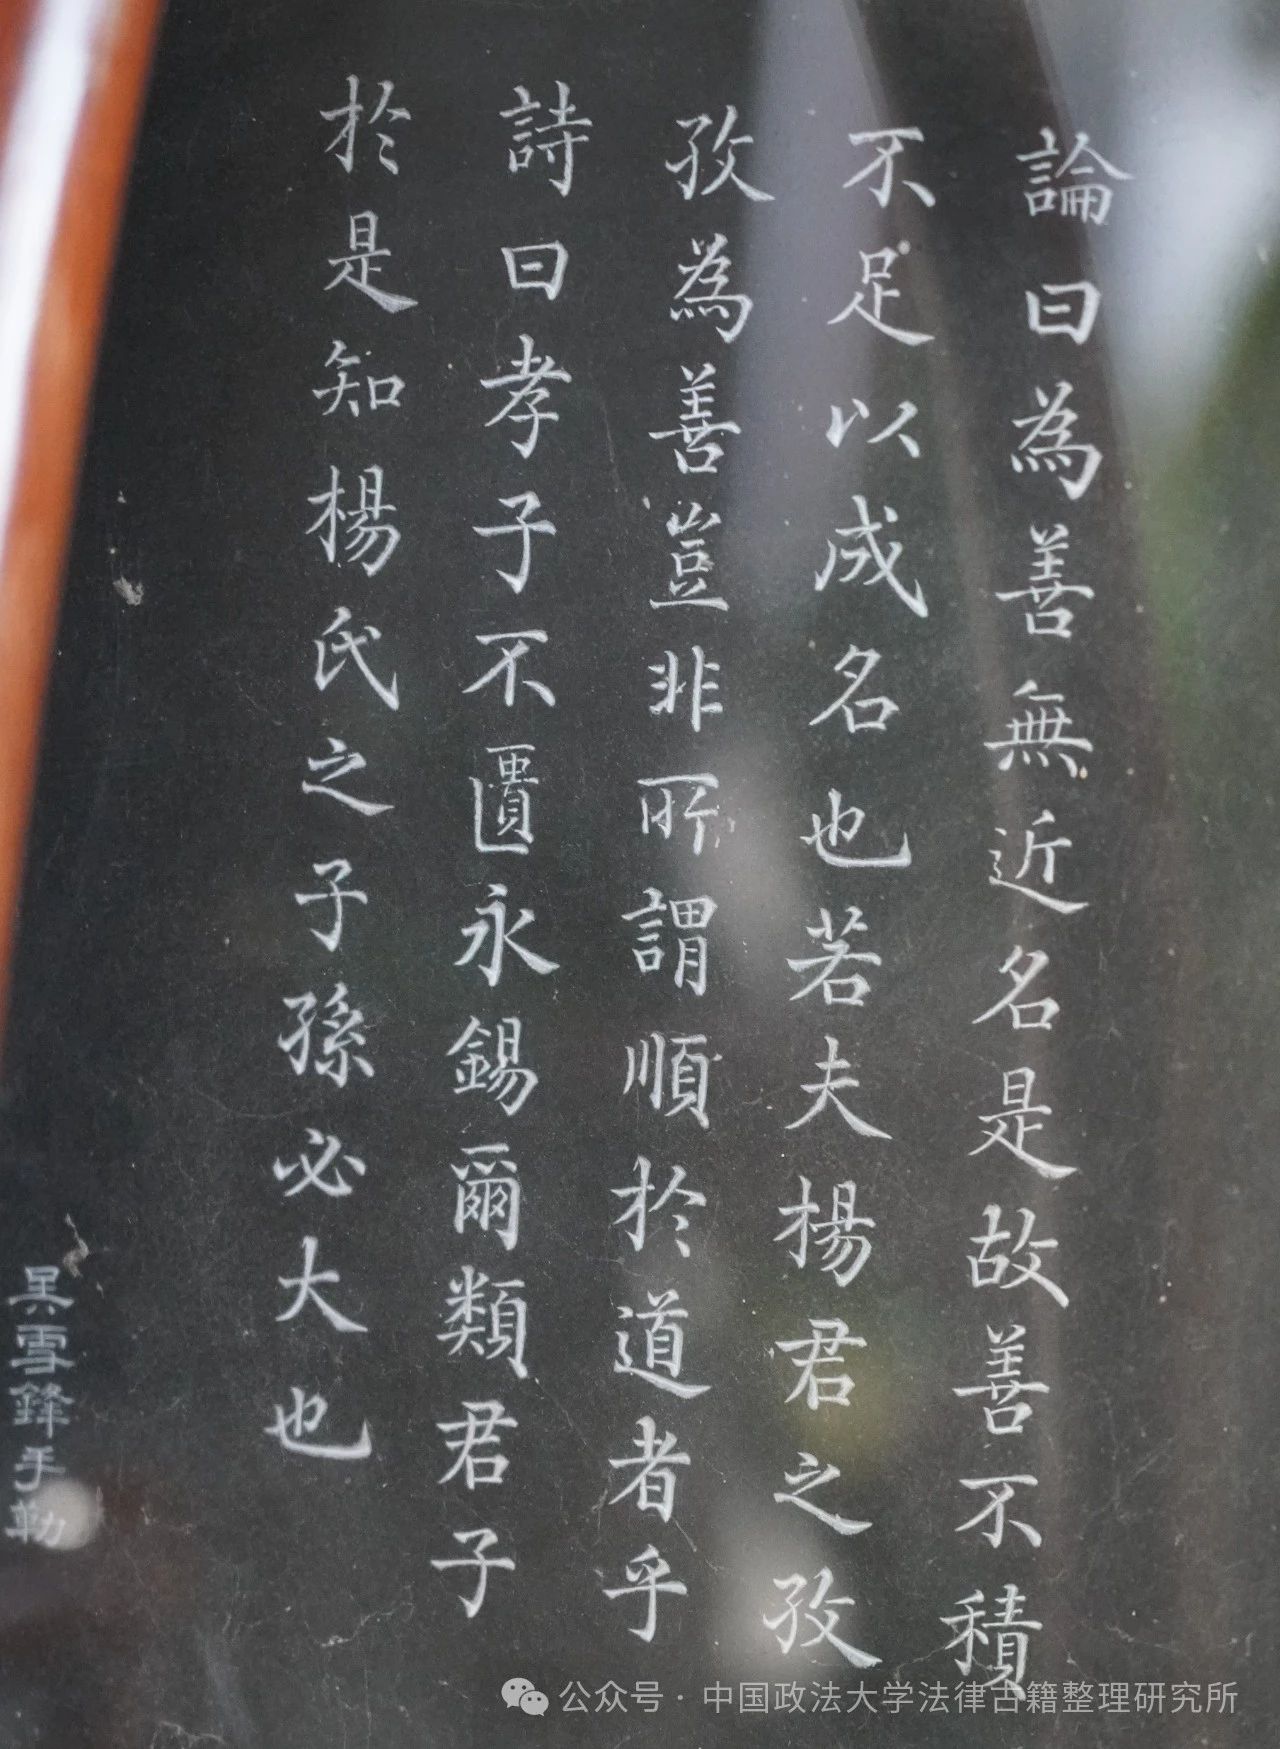 論曰為善無近名是故善不積
不足以成名也若夫楊君之孜
孜為善豈非所謂順於道者乎
詩曰孝子不匱永錫爾類君子
於是知楊氏之子孫必大也
吴雪鋒手勒
公众号·中国政法大学法律古籍整理研究所